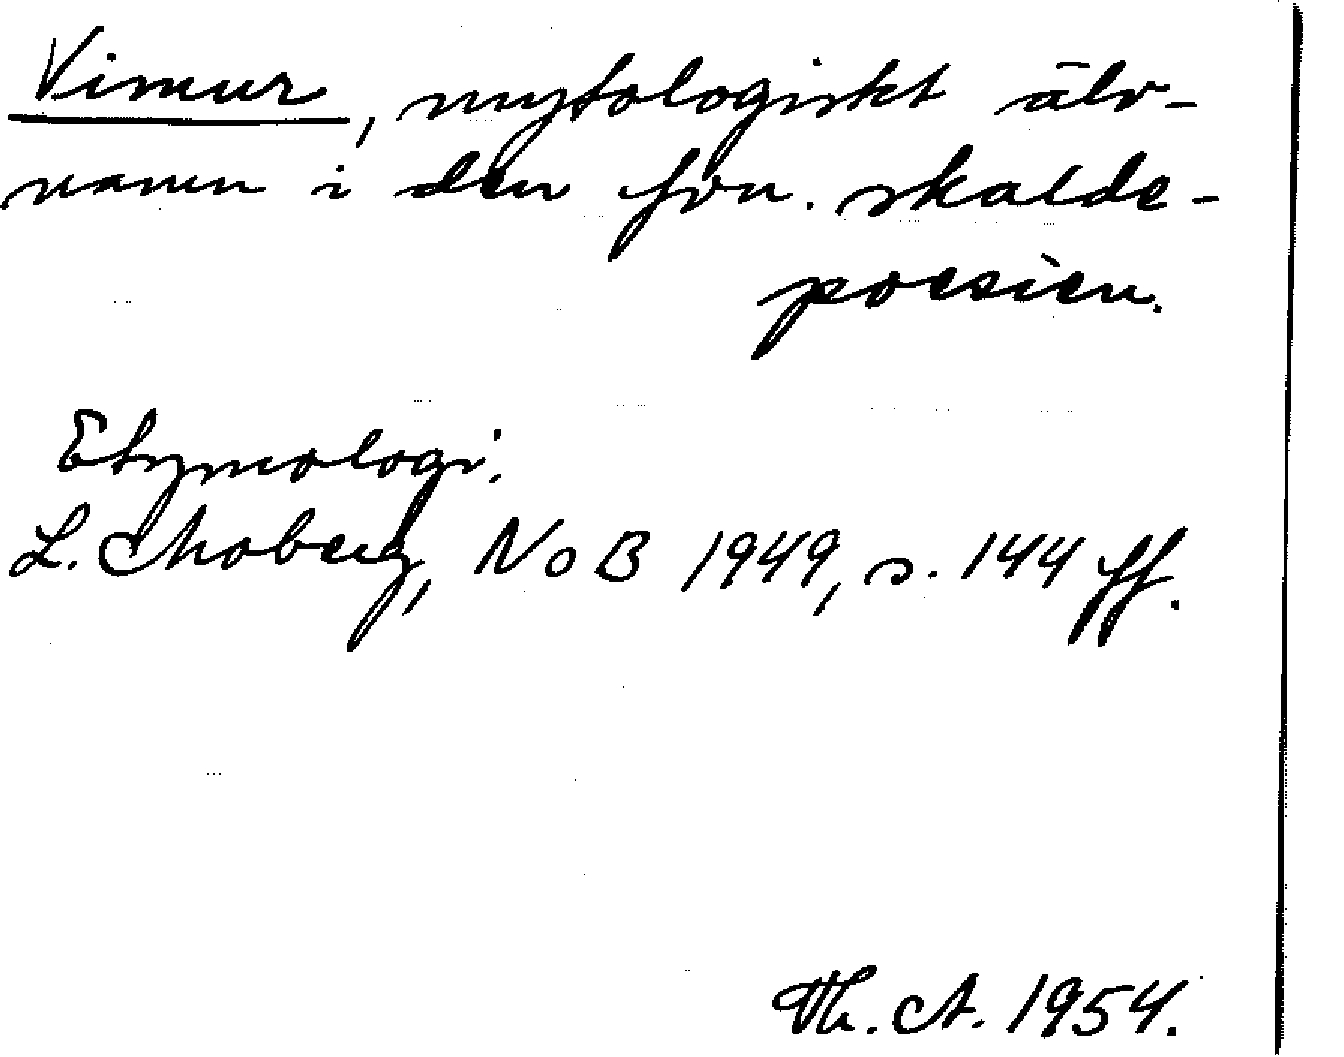 Vimur, mytologiskt älv-
namn i den fvn. skalde-
poesien.
Etymologi.
L. Moberg, NoB 1949, s. 144 ff.
Th. A. 1954.